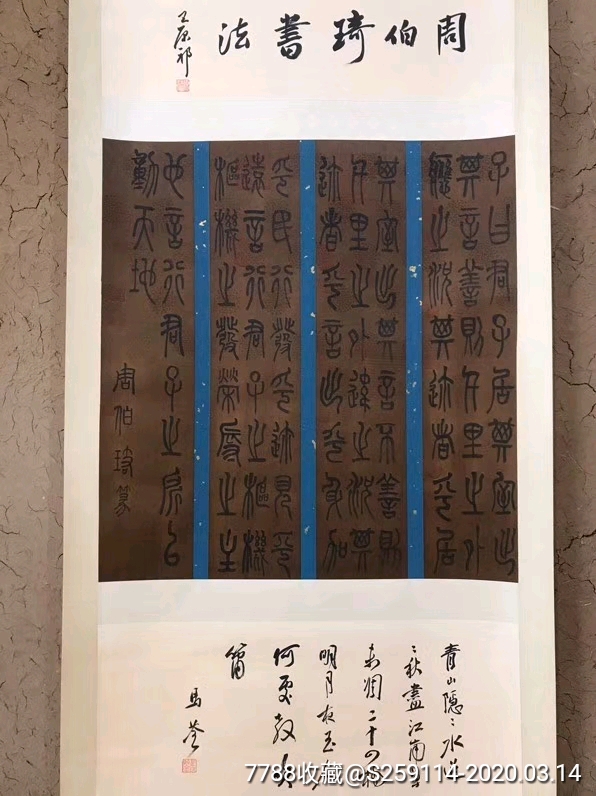 周伯琦書法
王原祁
子曰君子居其室出
其言善則千里之外
應之況其邇者乎居
其室出其言不善則
千里之外違之況其
邇者乎言出乎身加
乎民行發乎邇見乎
遠言行君子之樞機
樞機之發榮辱之主
也言行君子之所以
動天地
周伯琦篆
青山隱〻水
〻秋盡江南
未凋二十四橋
明月夜玉
何處教
簫
馬荃
7788收藏@S259114-2020.03.14